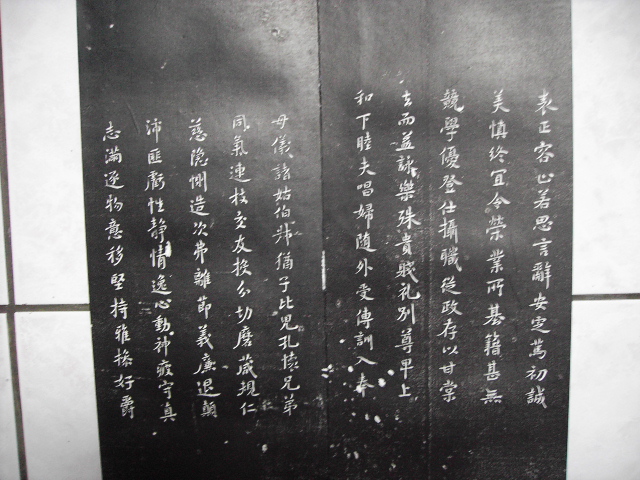 表正容止若思言辭安定篤初誠
美慎終宜令榮業所基籍甚無
競學優登仕攝職從政存以甘棠
去而益詠樂殊貴賤礼別尊卑上
和下睦夫唱婦随外受傅訓入奉
母儀諸姑伯叔猶子比兒孔懐兄弟
同氣連枝交友投分切磨箴規仁
慈隐惻造次弗離節義廉退顛
沛匪虧性静情逸心動神疲守真
志滿逐物意移堅持雅操好爵